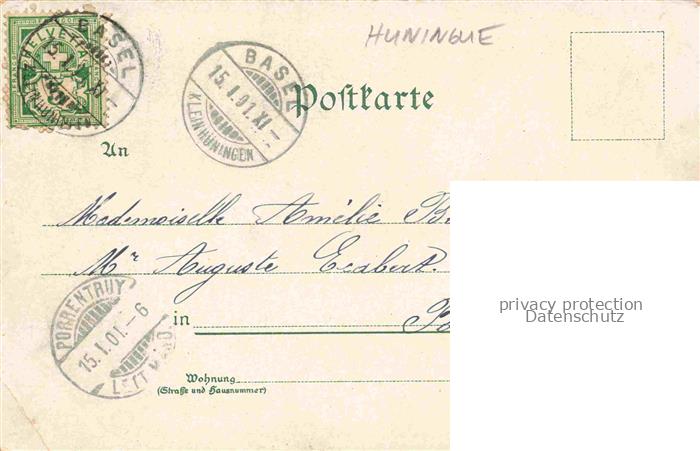 HUNINGUE
HELVETIA
BASEL
BASEL
15.I.01.XI–
KLEINHÜNINGEN
Postkarte
An
Mademoiselle Amélie
Mr Auguste
PORRENTRUY
15.I.01.–6
in
Wohnung
(Straße und Hausnummer)
privacy protection
Datenschutz